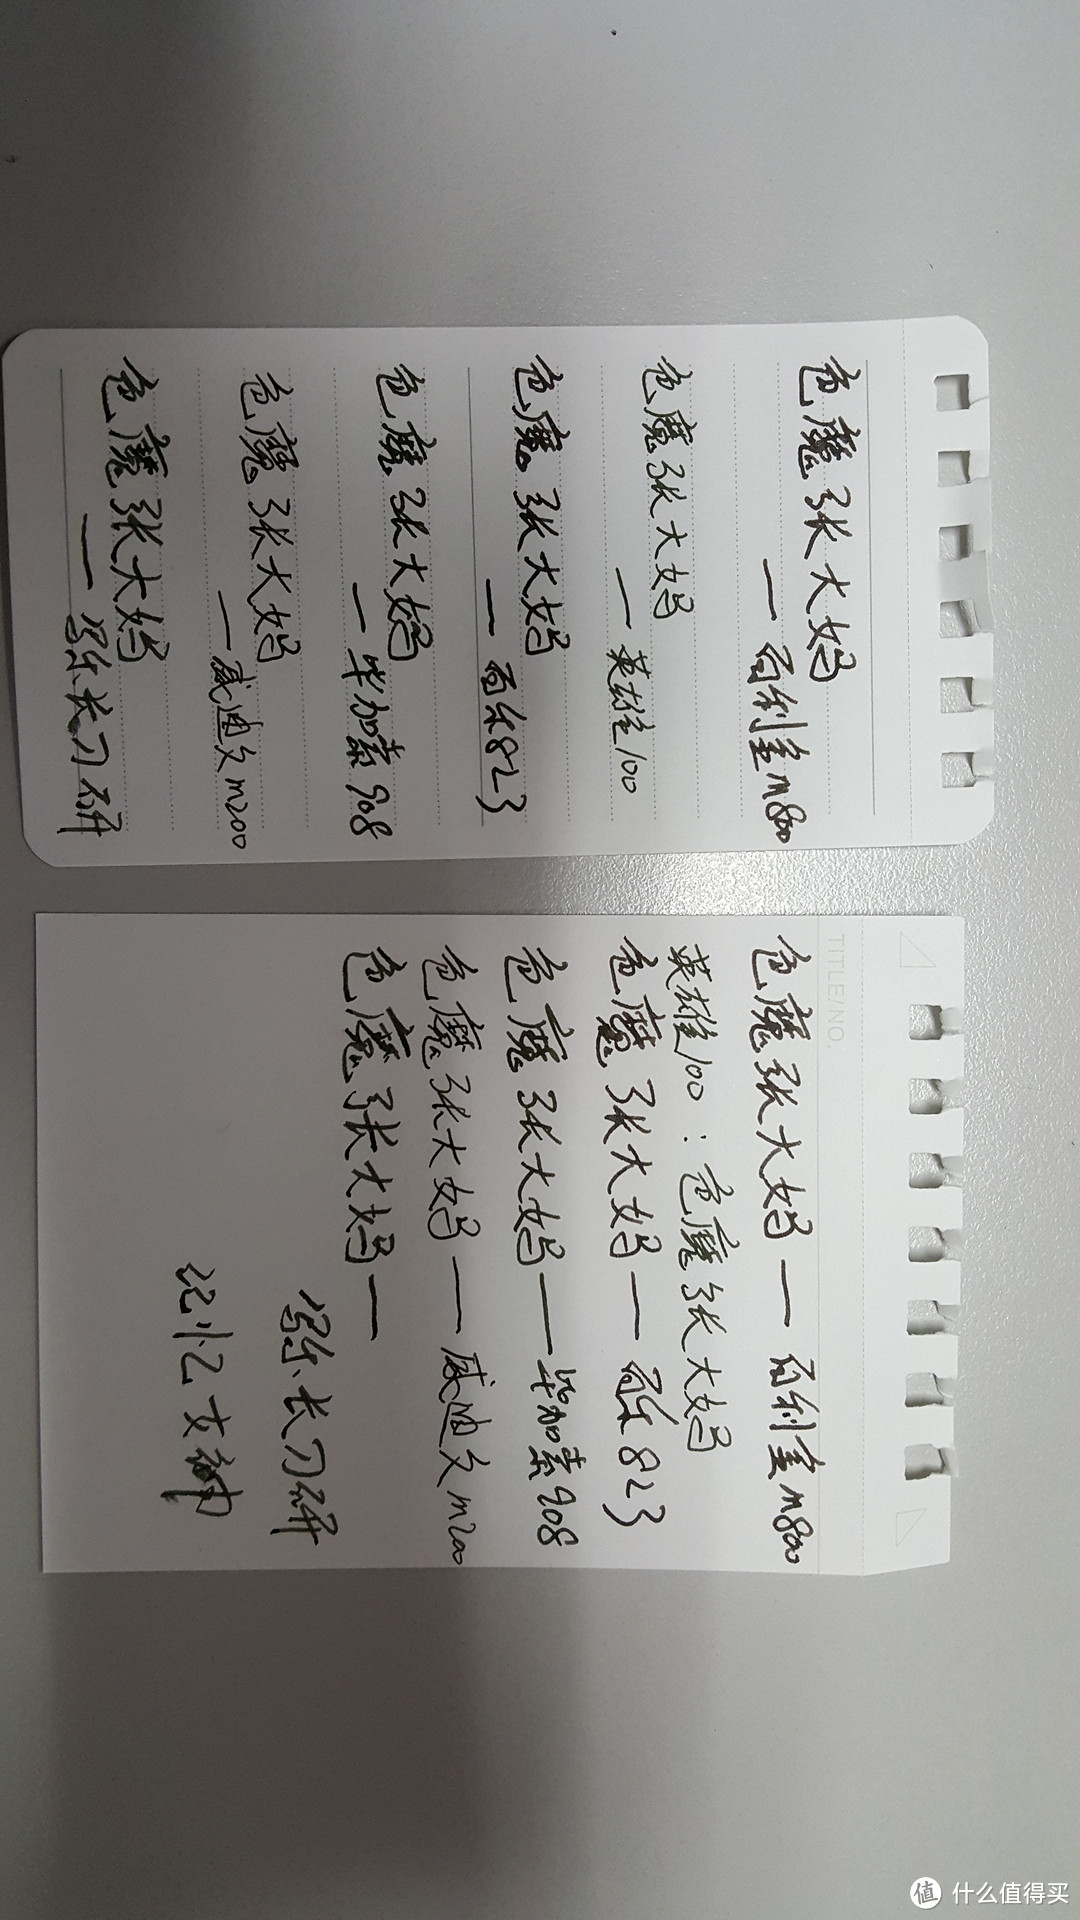 色魔张大妈
——百利金m800
色魔张大妈
——英雄100
色魔张大妈
——百乐823
色魔张大妈
——毕加索908
色魔张大妈
——威迪文m200
色魔张大妈
——写乐长刀研
TITLE/NO.
色魔张大妈——百利金m800
英雄100：色魔张大妈
色魔张大妈——百乐823
色魔张大妈——毕加索908
色魔张大妈——威迪文m200
色魔张大妈——
写乐长刀研
记忆女神
值 什么值得买